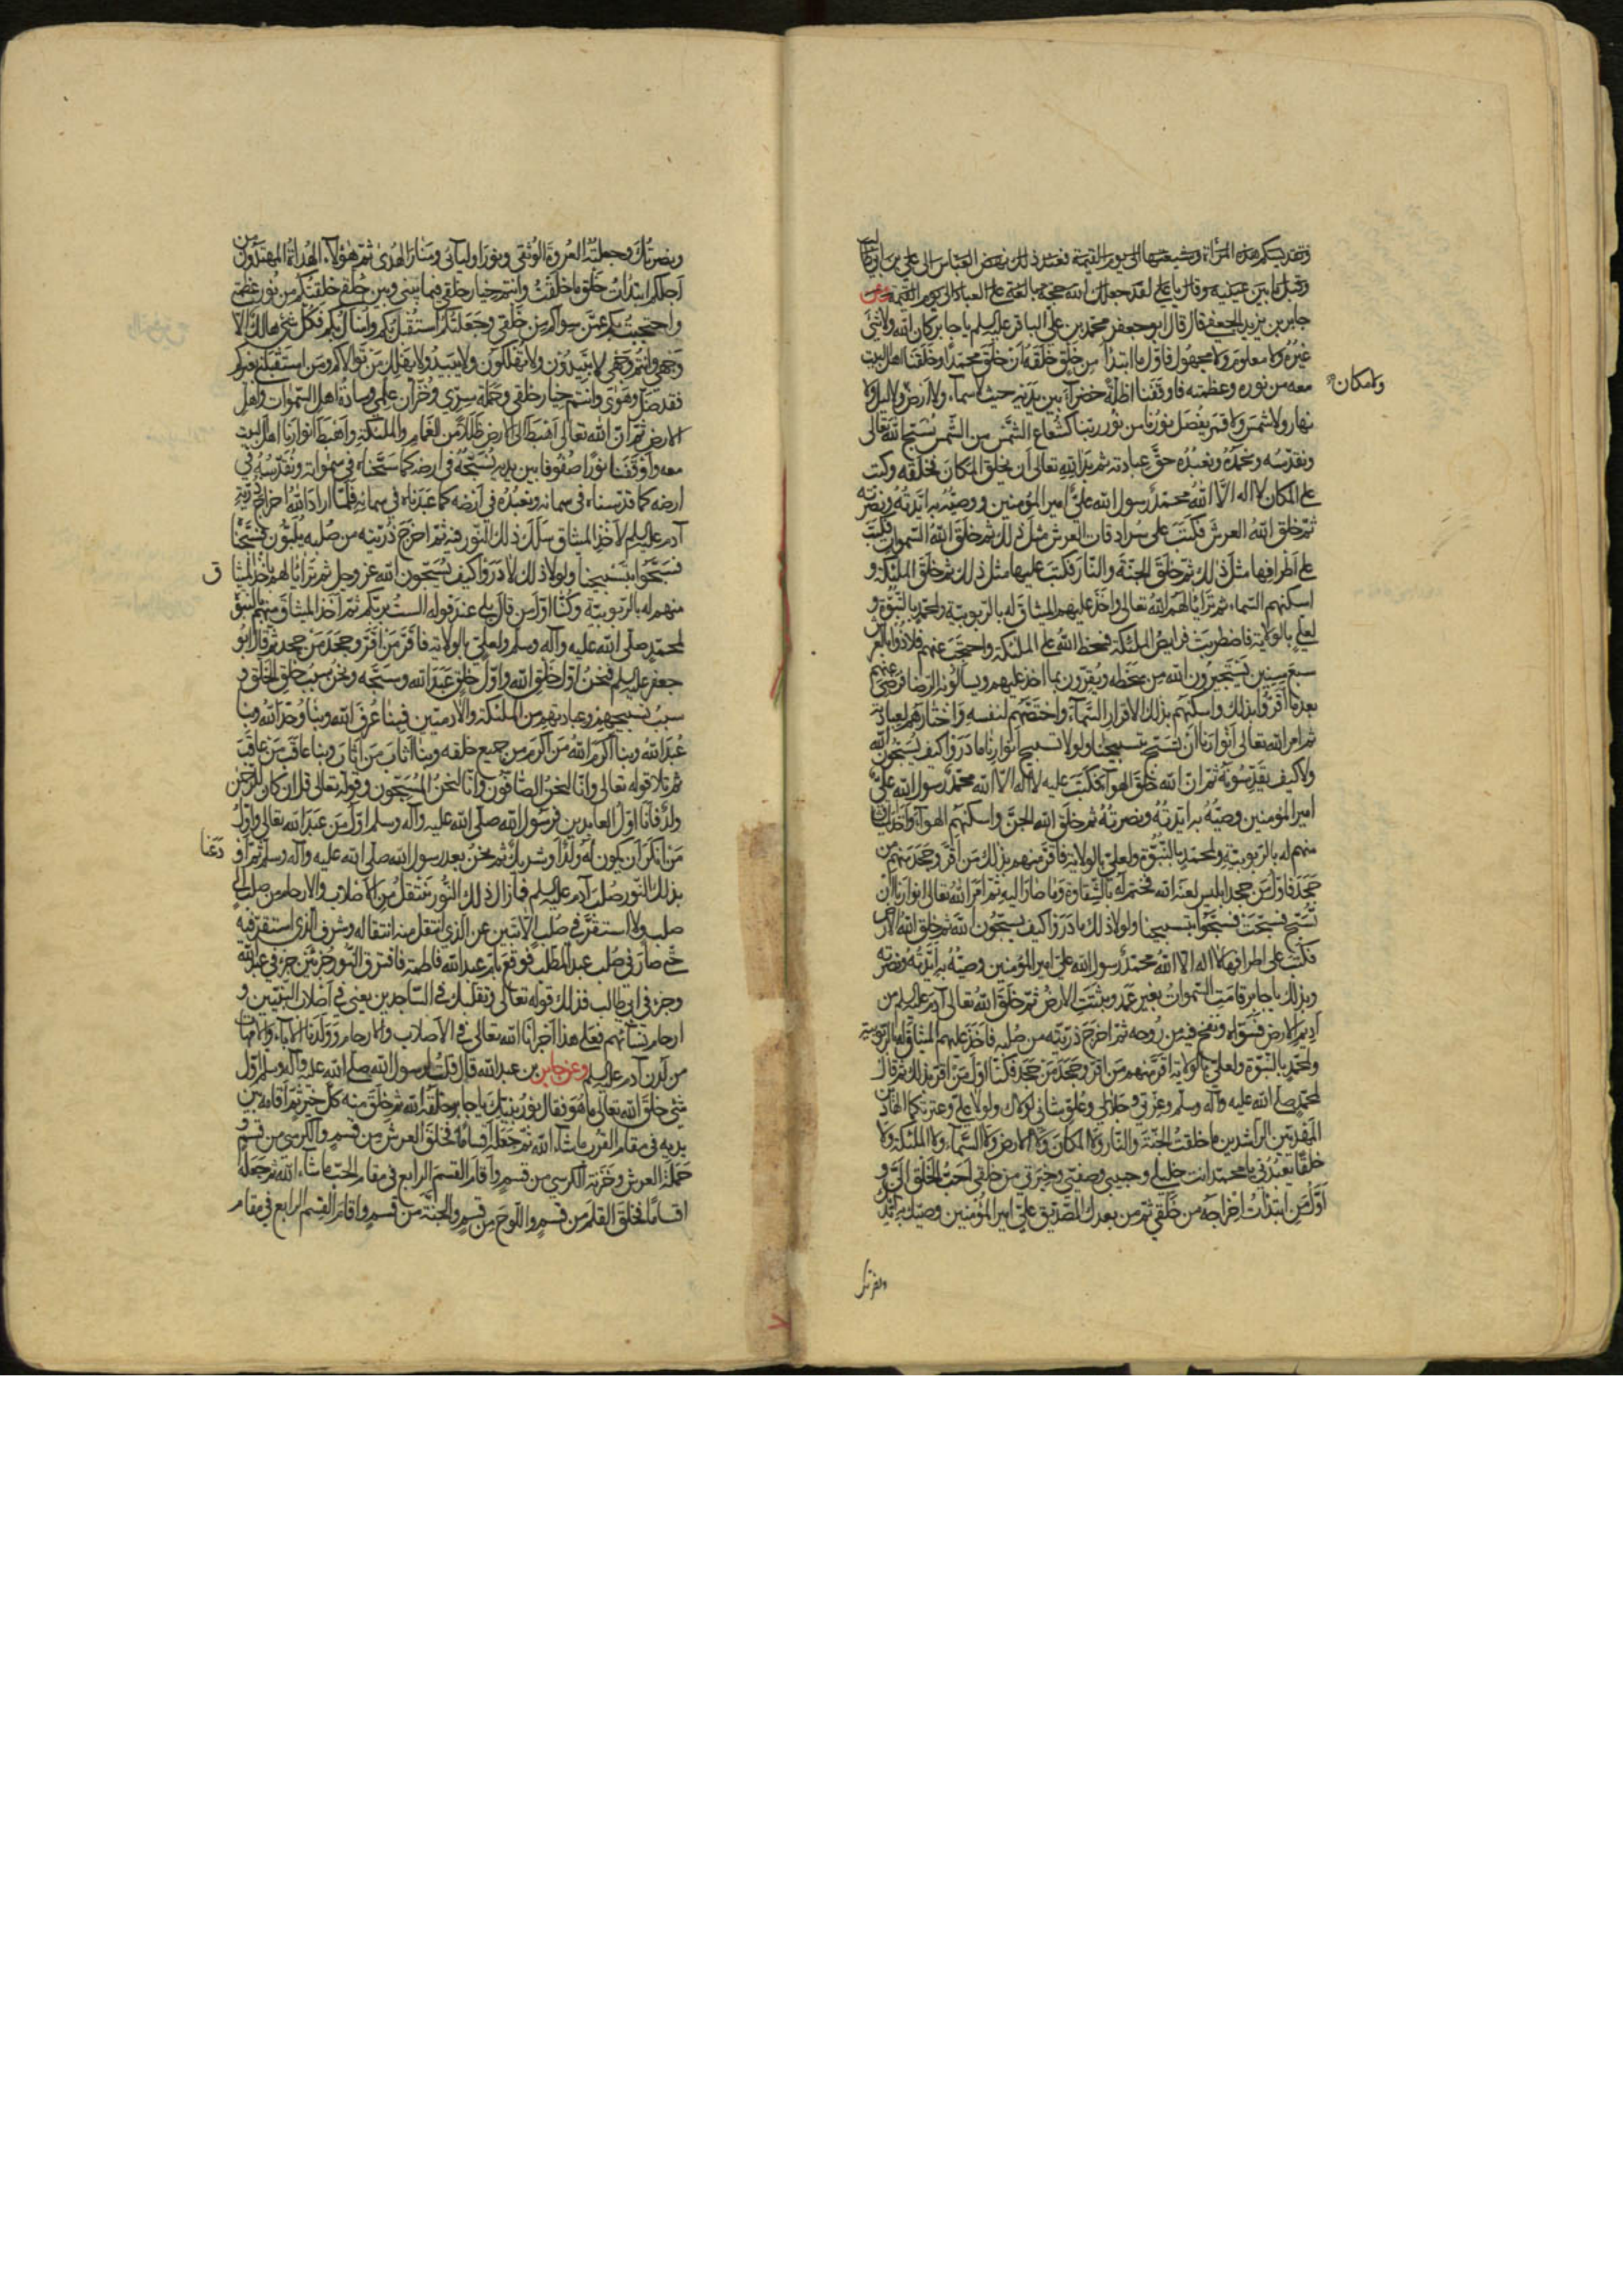 وتقديسكم هذه المرأة وشيعتها الى يوم القيمة فعند ذلك نهض العباس الى علي بن ابي طالب
وقبل ما بين عينيه وقال يا علي لقد جعلك الله حجة بالغة على العباد الى يوم القيمة وعن
جابر بن يزيد الجعفي قال قال ابو جعفر محمد بن علي الباقر عليه السلم يا جابر كان الله ولا شئ
غيره ولا معلوم ولا مجهول فاول ما ابتدأ من خلق خلقه ان خلق محمدا وخلقنا اهل البيت
معه من نوره وعظمته فاوقفنا اظلة خضراء بين يديه حيث لا سماء ولا ارض ولا ليل ولا
ولا مكان
نهار ولا شمس ولا قمر يفصل نورنا من نور ربنا كشعاع الشمس من الشمس نسبح الله تعالى
ونقدسه ونحمده ونعبده حق عبادته ثم بدا لله تعالى ان يخلق المكان فخلقه وكتب
على المكان لا اله الا الله محمد رسول الله علي امير المؤمنين ووصيه به ايدته ونصرته
ثم خلق الله العرش فكتب على سرادقات العرش مثل ذلك ثم خلق الله السموات فكتب
على اطرافها مثل ذلك ثم خلق الجنة والنار فكتب عليها مثل ذلك ثم خلق الملئكة و
اسكنهم السماء ثم ترائا لهم الله تعالى واخذ عليهم الميثاق له بالربوبية ولمحمد بالنبوة و
لعلي بالولاية فاضطربت فرايص الملئكة فسخط الله على الملئكة واحتجب عنهم فلاذوا بالعرش
سبع سنين يستجيرون الله من سخطه ويقرون بما اخذ عليهم ويسالونه الرضا فرضي عنهم
بعد ما اقروا بذلك واسكنهم بذلك الاقرار السماء واختصهم لنفسه واختارهم لعبادته
ثم امر الله تعالى انوارنا ان تسبح فسبحنا ولولا تسبيح انوارنا ما دروا كيف يسبحون الله
ولا كيف يقدسونه ثم ان الله خلق الهواء فكتب عليه لا اله الا الله محمد رسول الله علي
امير المؤمنين وصيه به ايدته ونصرته ثم خلق الله الجن واسكنهم الهواء واخذ الميثاق
منهم له بالربوبية ولمحمد بالنبوة ولعلي بالولاية فاقر منهم بذلك من اقر وجحد منهم من
جحد فاول من جحد ابليس لعنه الله فختم له بالشقاوة وما صار اليه ثم امر الله تعالى انوارنا ان
تسبح فسبحت فسبحوا بتسبيحنا ولولا ذلك ما دروا كيف يسبحون الله ثم خلق الله الارض
فكتب على اطرافها لا اله الا الله محمد رسول الله علي امير المؤمنين وصيه به ايدته ونصرته
وبذلك يا جابر قامت السموات بغير عمد وثبتت الارض ثم خلق الله تعالى آدم عليه السلم من
اديم الارض فسواه ونفخ فيه من روحه ثم اخرج ذريته من صلبه فاخذ عليهم الميثاق له بالربوبية
ولمحمد بالنبوة ولعلي بالولاية اقر منهم من اقر وجحد من جحد فكنا اول من اقر بذلك ثم قال
لمحمد صلى الله عليه وآله وسلم وعزتي وجلالي وعلو شاني لولاك ولولا علي وعترتكما الهادين
المهديين الراشدين ما خلقت الجنة والنار ولا المكان ولا الارض ولا السماء ولا الملئكة ولا
خلقا يعبدني يا محمد انت خليلي وحبيبي وصفيي وخيرتي من خلقي احب الخلق الي و
اول من ابتدات اخراجه من خلقي ثم من بعدك الصديق علي امير المؤمنين وصيك به ايدتك
ونصرتك
ونصرتك وجعلته العروة الوثقى ونور اوليائي ومنار الهدى ثم هؤلاء الهداة المهتدون من
اجلكم ابتدات خلق ما خلقت وانتم خيار خلقي فيما بيني وبين خلقي خلقتكم من نور عظمتي
واحتجبت بكم عمن سواكم من خلقي وجعلتكم استقبل بكم واسال بكم فكل شئ هالك الا
وجهي وانتم وجهي لا تبيدون ولا تهلكون ولا يبيد ولا يهلك من توالاكم ومن استقبلني بغيركم
فقد ضل وهوى وانتم خيار خلقي وحملة سري وخزان علمي وسادة اهل السموات واهل
الارض ثم ان الله تعالى اهبط الى الارض ظللا من الغمام والملئكة واهبط انوارنا اهل البيت
معه واوقفنا نورا صفوفا بين يديه نسبحه في ارضه كما سبحناه في سمواته ونقدسه في
ارضه كما قدسناه في سمائه ونعبده في ارضه كما عبدناه في سمائه فلما اراد الله اخراج ذرية
آدم عليه السلم لاخذ الميثاق سلك ذلك النور فيه ثم اخرج ذريته من صلبه يلبون فسبحنا
فسبحوا بتسبيحنا ولولا ذلك لا دروا كيف يسبحون الله عز وجل ثم ترائا لهم باخذ الميثا
ق
منهم له بالربوبية وكنا اول من قال بلى عند قوله الست بربكم ثم اخذ الميثاق منهم بالنبوة
لمحمد صلى الله عليه وآله وسلم ولعلي بالولاية فاقر من اقر وجحد من جحد ثم قال ابو
جعفر عليه السلم فنحن اول خلق الله واول خلق عبد الله وسبحه ونحن سبب خلق الخلق و
سبب تسبيحهم وعبادتهم من الملئكة والآدميين فبنا عرف الله وبنا وحد الله وبنا
عبد الله وبنا اكرم الله من اكرم من جميع خلقه وبنا اثاب من اثاب وبنا عاقب من عاقب
ثم تلا قوله تعالى وانا لنحن الصافون وانا لنحن المسبحون وقوله تعالى قل ان كان للرحمن
ولد فانا اول العابدين فرسول الله صلى الله عليه وآله وسلم اول من عبد الله تعالى واول
من انكر ان يكون له ولد او شريك ثم نحن بعد رسول الله صلى الله عليه وآله وسلم ثم او
دعنا
بذلك النور صلب آدم عليه السلم فما زال ذلك النور ينتقل من الاصلاب والارحام من صلب الى
صلب ولا استقر في صلب الا تبين عن الذي انتقل منه انتقاله وشرف الذي استقر فيه
حتى صار في صلب عبد المطلب فوقع بام عبد الله فاطمة فافترق النور جزئين جزء في عبد الله
وجزء في ابي طالب فذلك قوله تعالى وتقلبك في الساجدين يعني في اصلاب النبيين و
ارحام نسائهم فعلى هذا اجرانا الله تعالى في الاصلاب والارحام وولدنا الآباء والامهات
من لدن آدم عليه السلم وعن جابر بن عبد الله قال قلت لرسول الله صلى الله عليه وآله وسلم اول
شئ خلق الله تعالى ما هو فقال نور نبيك يا جابر خلقه الله ثم خلق منه كل خير ثم اقامه بين
يديه في مقام القرب ما شاء الله ثم جعله اقساما فخلق العرش من قسم والكرسي من قسم و
حملة العرش وخزنة الكرسي من قسم واقام القسم الرابع في مقام الحب ما شاء الله ثم جعله
اقساما فخلق القلم من قسم واللوح من قسم والجنة من قسم واقام القسم الرابع في مقام